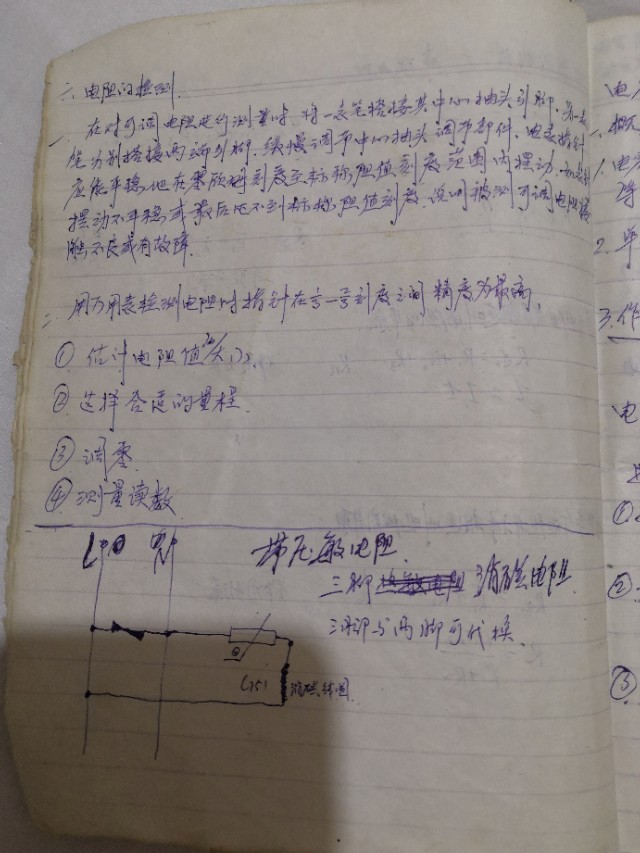 六 电阻的检测.
一、在对可调电阻进行测量时, 将一表笔搭接其中心抽头引脚, 另一表
笔分别搭接两端引脚, 缓慢调节中心抽头调节部件, 电表指针
应能平稳地在零欧姆刻度至标称阻值刻度范围内摆动, 如指针
摆动不平稳或最后达不到标称阻值刻度, 说明被测可调电阻接
触不良或有故障.
二、用万用表检测电阻时指针在 刻度之间精度为最高,
① 估计电阻值 大小.
② 选择合适的量程
③ 调零
④ 测量读数
带压敏电阻
三脚 消磁电阻
三脚与两脚可代换.
θ
消磁线圈
电
概
1. 电
2. 单
3. 作
电
①
②
③